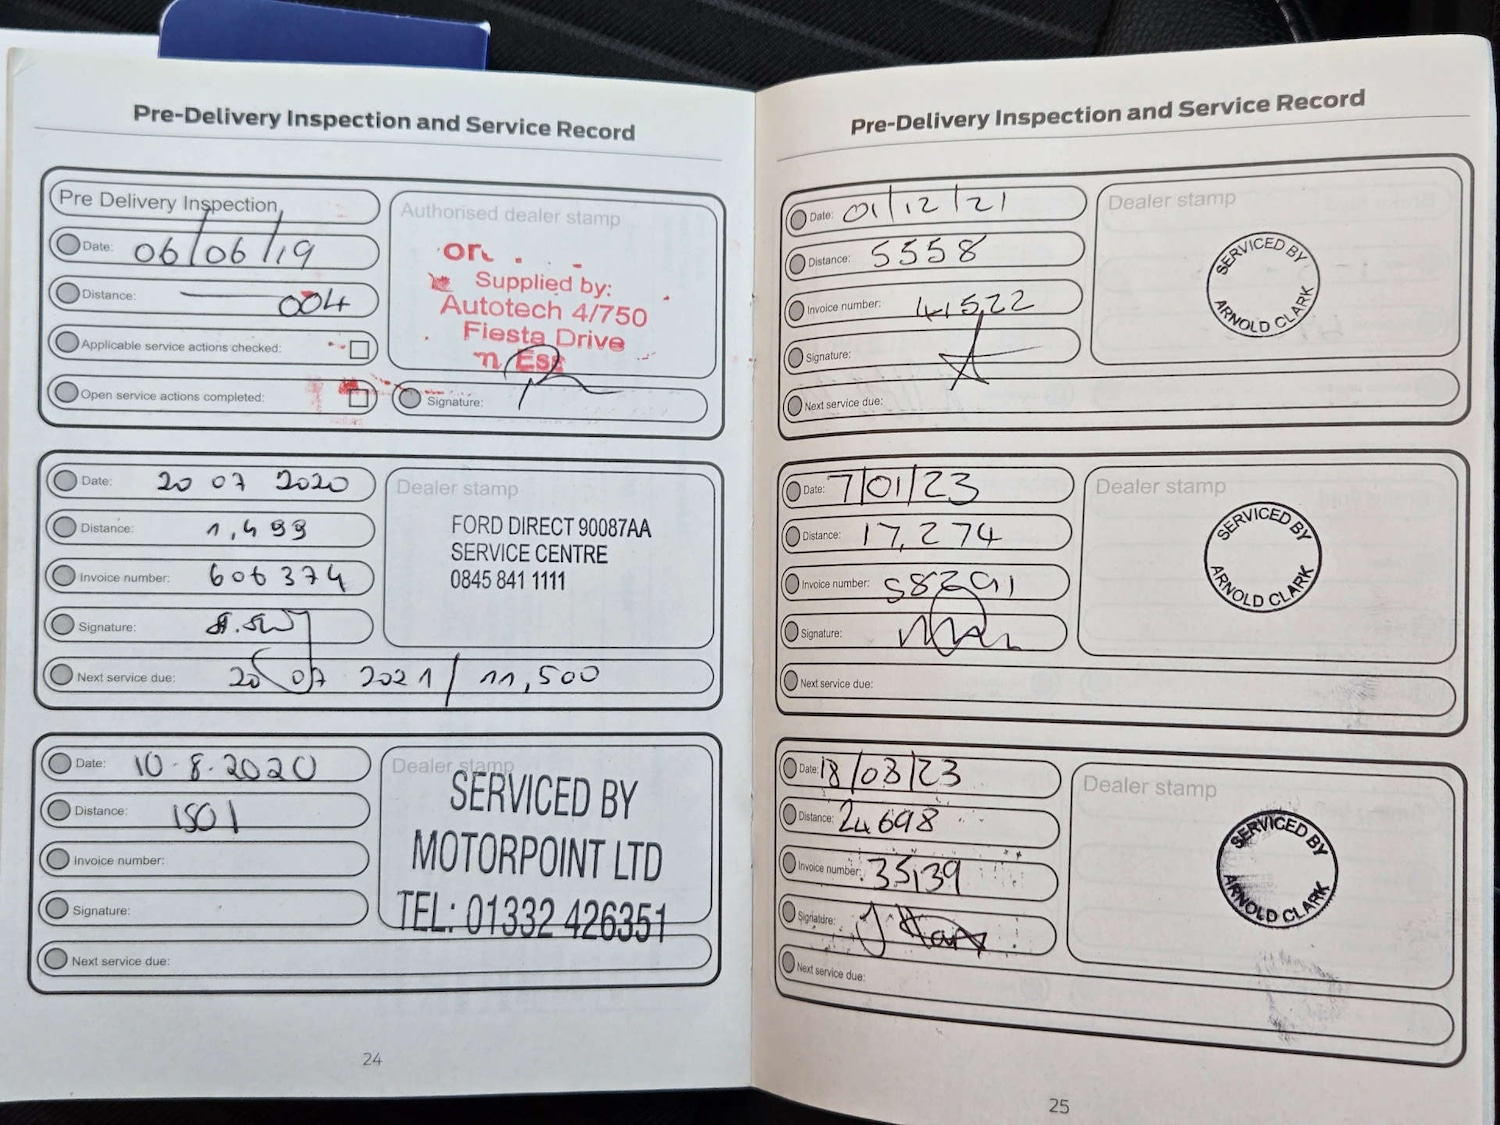 Pre-Delivery Inspection and Service Record
Pre Delivery Inspection
Date: 06/06/19
Distance: 004
Applicable service actions checked:
Open service actions completed:
Authorised dealer stamp
Supplied by:
Autotech 4/750
Fiesta Drive
Signature:
Date: 20 07 2020
Distance: 1,499
Invoice number: 606374
Signature:
Next service due: 20 07 2021 / 11,500
Dealer stamp
FORD DIRECT 90087AA
SERVICE CENTRE
0845 841 1111
Date: 10-8-2020
Distance: 1501
Invoice number:
Signature:
Next service due:
Dealer stamp
SERVICED BY
MOTORPOINT LTD
TEL: 01332 426351
24
Pre-Delivery Inspection and Service Record
Date: 01/12/21
Distance: 5558
Invoice number: 41522
Signature:
Next service due:
Dealer stamp
SERVICED BY
ARNOLD CLARK
Date: 7/01/23
Distance: 17,274
Invoice number: 58291
Signature:
Next service due:
Dealer stamp
SERVICED BY
ARNOLD CLARK
Date: 18/08/23
Distance: 24698
Invoice number: 35139
Signature:
Next service due:
Dealer stamp
SERVICED BY
ARNOLD CLARK
25